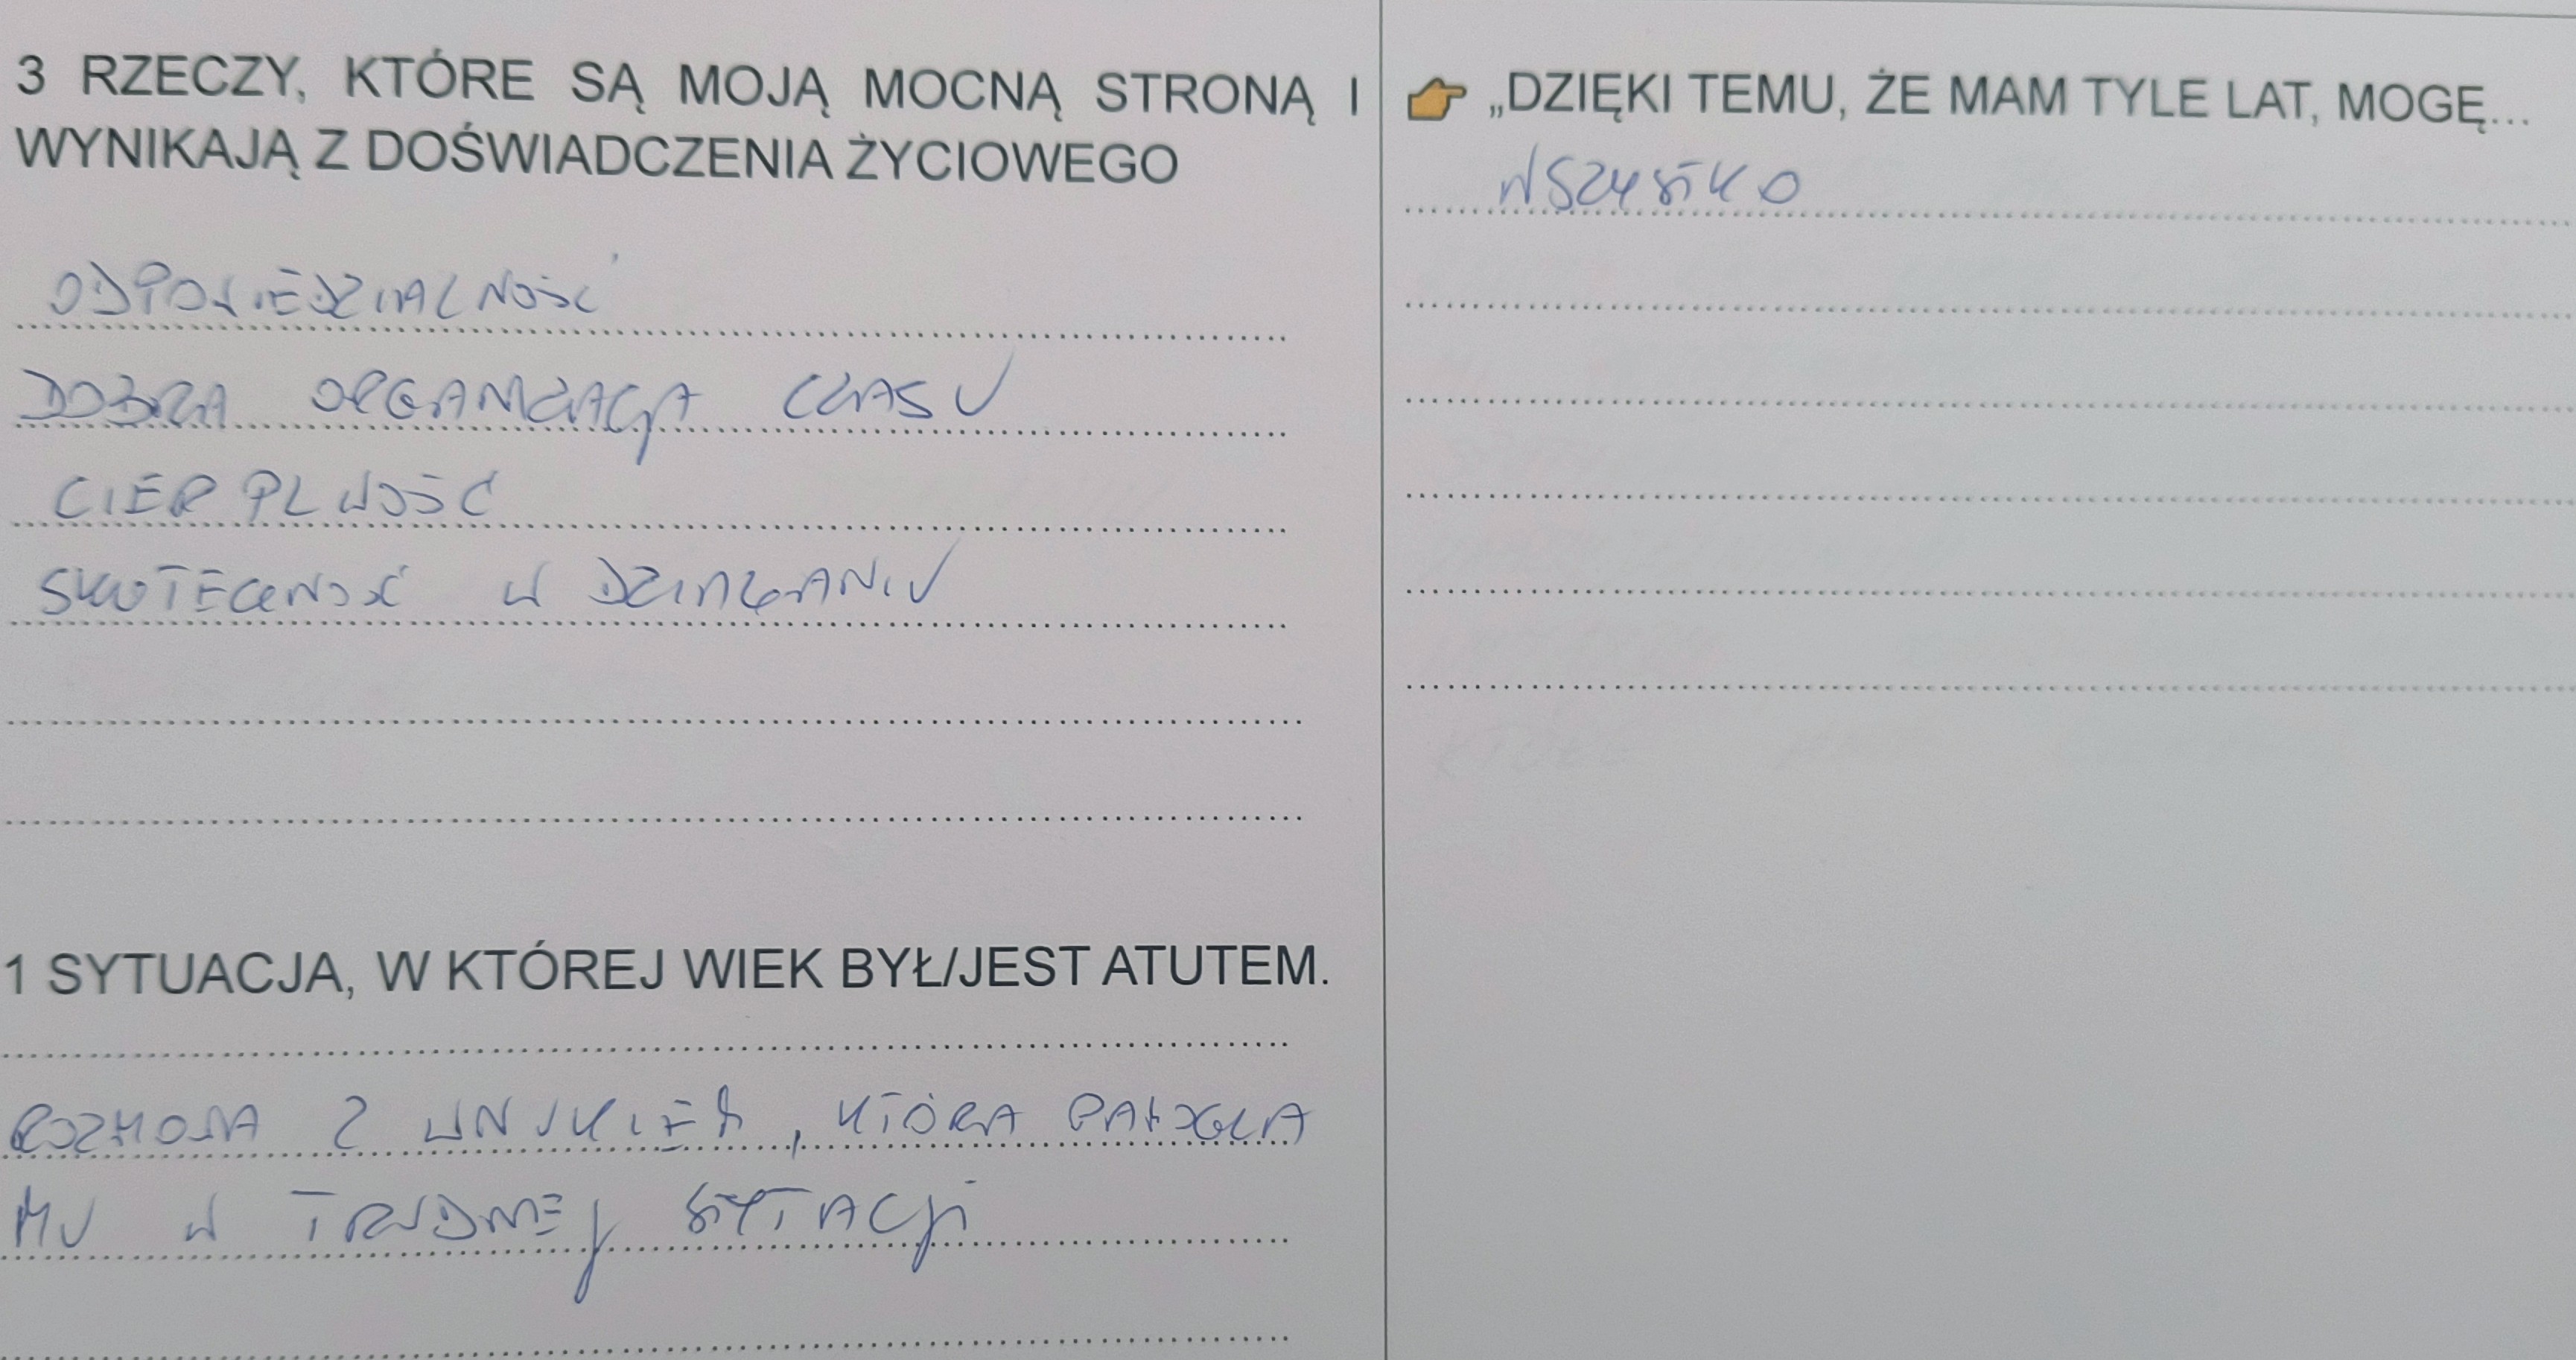 3 RZECZY, KTÓRE SĄ MOJĄ MOCNĄ STRONĄ I
WYNIKAJĄ Z DOŚWIADCZENIA ŻYCIOWEGO
ODPOWIEDZIALNOŚĆ
DOBRA ORGANIZACJA CZASU
CIERPLWOŚĆ
SKUTECZNOŚĆ W DZIAŁANIU
1 SYTUACJA, W KTÓREJ WIEK BYŁ/JEST ATUTEM.
ROZMOWA Z WNUKIEM, KTÓRA
MU W TRUDNEJ SYTACJI
👉 „DZIĘKI TEMU, ŻE MAM TYLE LAT, MOGĘ...
WSZYSTKO